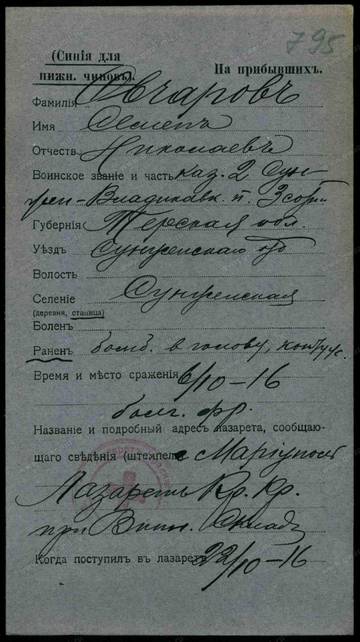 795
(Синія для
нижн. чиновъ).
На прибывшихъ.
Фамилія Овчаровъ
Имя Семенъ
Отчеств Николаевъ
Воинское званіе и часть каз. 2 Сун-
жен-Владикавк. п. 3 сотни
Губернія Терская обл.
Уѣздъ Сунженскаго отд
Волость
Селеніе Сунженская
(деревня, станица)
Боленъ
Раненъ въ голову, контуз.
Время и мѣсто сраженія 6/10-16
фр.
Названіе и подробный адресъ лазарета, сообщаю-
щаго свѣдѣнія (штемпель Маріуполь
Лазаретъ Кр. Кр.
при Складѣ
Когда поступилъ въ лазаретъ 22/10-16